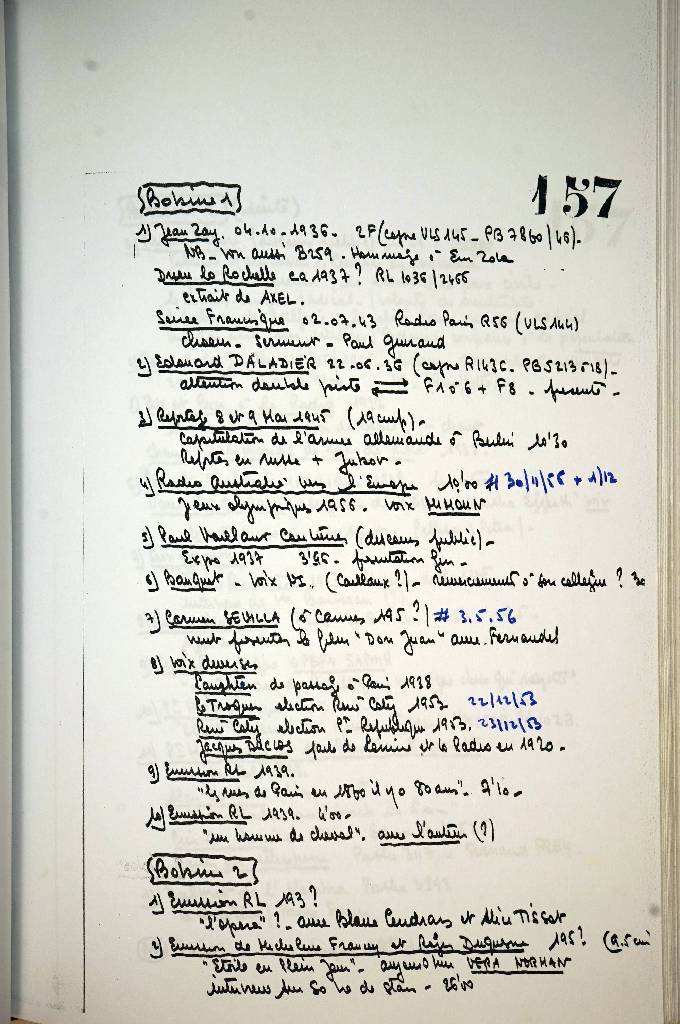 157
Bobine 1
1) Jean Zay. 04.10.1936. 2F (copie VLS 145 - PB 7860/46)-
NB - Voir aussi B259. Hommage à Em Zola
Drieu la Rochelle ca 1937? RL 1036/2466
extrait de AXEL.
Soirée Francisque 02.07.43 Radio Paris R56 (VLS144)
choeur - Serment - Paul
2) Edouard DALADIER 22.06.36 (copie R143C - PB5213 518)-
attention double piste ⇄ F106 + F8 -
3) Reportage 8 et 9 Mai 1945 (19cmp)-
capitulation de l'armée allemande à Berlin 10'30
en russe + Jukov -
4) Radio Australie vers l'Europe 10'00 # 30/11/56 + 1/12
Jeux olympiques 1956. voix MIMOUN
5) Paul Vaillant Couturier (discours public)-
Expo 1937 3'55 -
6) Banquet - Voix NI. (Caillaux?) - remerciement à son collègue?
7) Carmen SEVILLA (à Cannes 195?) # 3.5.56
vient présenter le film "Don Juan" avec Fernandel
8) Voix diverses
Laughton de passage à Paris 1938
Le Troquer election René Coty 1953 22/12/53
René Coty election Pt République 1953. 23/12/53
Jacques DUCLOS parle de Lénine et la Radio en 1920 -
9) Emission RL 1939.
"Les rues de Paris en 1860 il y a 80 ans". 2'10 -
10) Emission RL 1939. 4'00-
"un homme de cheval". avec l'auteur (?)
Bobine 2
1) Emission RL 193?
"l'opéra"? - avec Blaise Cendrars et Alice Tissot
2) Emission de Micheline Francey et Roger Duquesne 195? (9.5cm
"Etoile en Plein Jour" - aujourd'hui VERA NORMAN
interview sur sa vie de star - 26'00